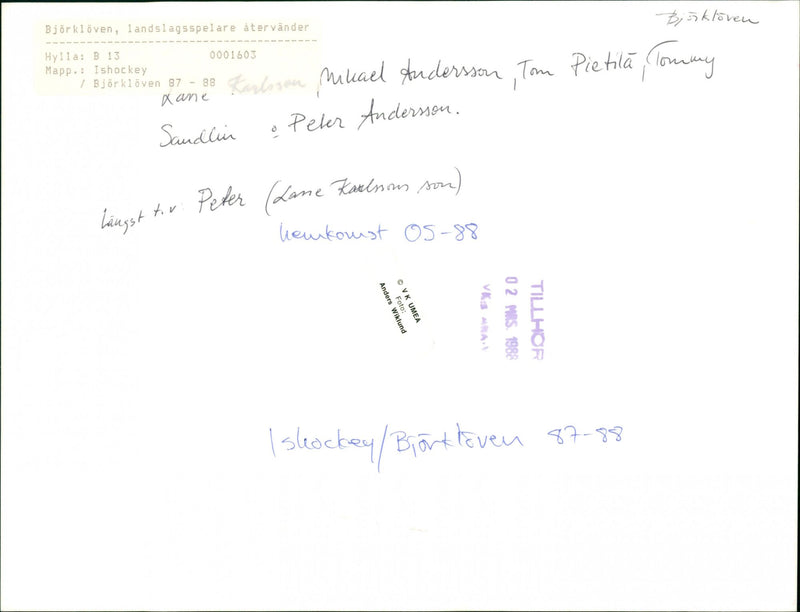 Björklöven
Björklöven, landslagsspelare återvänder
Hylla: B 13 0001603
Mapp.: Ishockey
/ Björklöven 87 - 88
Lasse Karlsson, Mikael Andersson, Tom Pietilä, Tommy
Sandlin o Peter Andersson.
Längst t.v. Peter (Lasse Karlssons son)
hemkomst OS-88
© VK UMEÅ
Foto:
Anders Wiklund
TILLHÖR
02 MRS. 1988
Ishockey/Björklöven 87-88